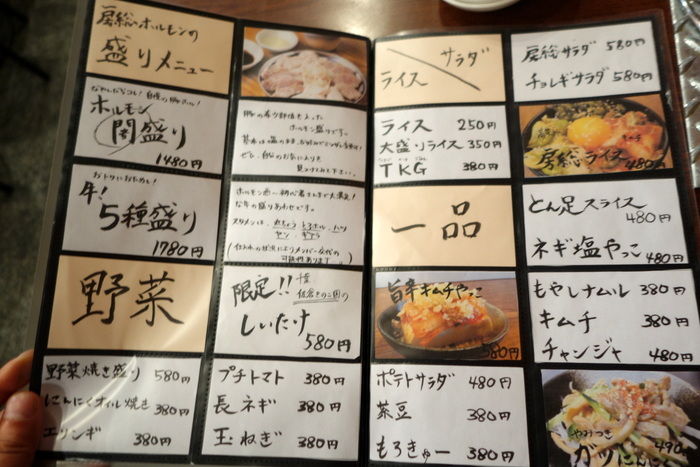 房総ホルモンの
盛りメニュー
ホルモン
闇盛り
1480円
おトクにおためし!
牛!
5種盛り
1780円
野菜
野菜焼き盛り 580円
にんにくオイル焼き 380円
エリンギ 380円
豚の希少部位を入った
ホルモン盛りです。
ホルモン通〜初心者さんまで大満足!
な牛の盛りあわせです。
限定!!
しいたけ
580円
プチトマト 380円
長ネギ 380円
玉ねぎ 380円
サラダ
ライス
ライス 250円
大盛りライス 350円
TKG 380円
一品
旨辛キムチやっこ
580円
ポテトサラダ 480円
茶豆 380円
もろきゅー 380円
房総サラダ 580円
チョレギサラダ 580円
房総ライス 480円
とん足スライス
480円
ネギ塩やっこ
480円
もやしナムル 380円
キムチ 380円
チャンジャ 480円
やみつき
490
ガツにんにく